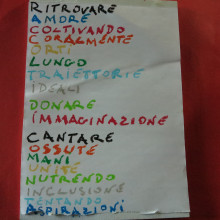 RITROVARE
AMORE
COLTIVANDO
CORALMENTE
ORTI
LUNGO
TRAIETTORIE
IDEALI
DONARE
IMMAGINAZIONE
CANTARE
OSSUTE
MANI
UNITE
NUTRENDO
INCLUSIONE
TENTANDO
ASPIRAZIONI